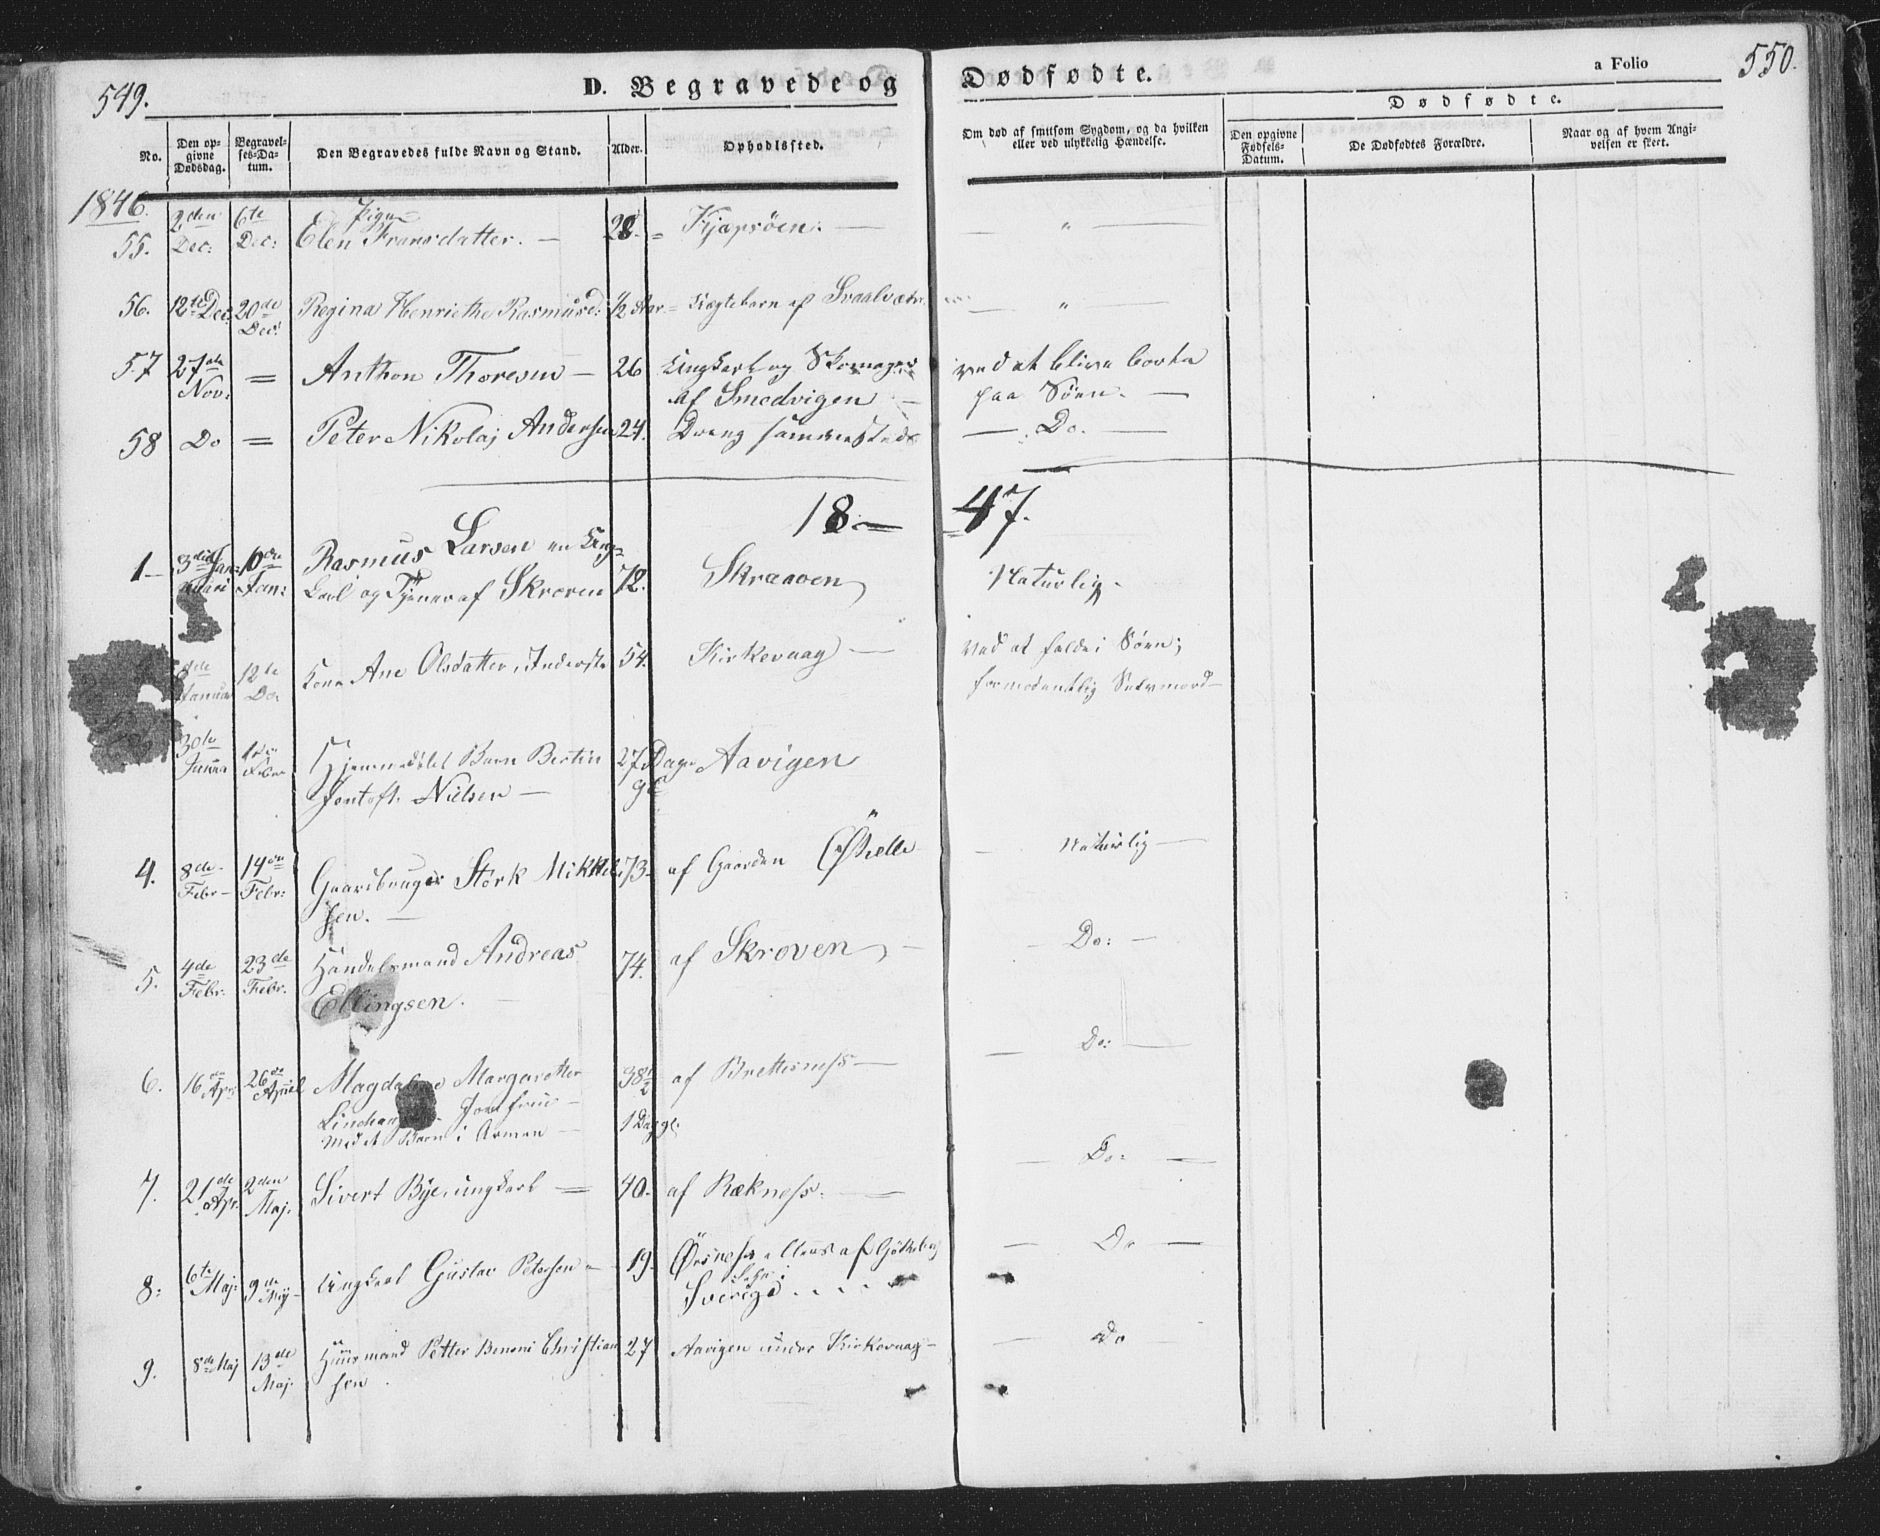 549.
D. Begravede og Dødfødte.
a Folio 550.
No.
Den opgivne Dødsdag.
Begravelses-Datum.
Den Begravedes fulde Navn og Stand.
Alder.
Opholdssted.
Om død af smitsom Sygdom, og da hvilken eller ved ulykkelig Hændelse.
Dødfødte.
Den opgivne Fødsels-Datum.
De Dødfødtes Forældre.
Naar og af hvem Angivelsen er skeet.
1846.
55. 2den Dec: 6te Dec: Pige Elen Fransdatter. — 28. = Kjæpsöen. — "
56. 12te Dec: 20de Dec: Regina Henriethe Rasmusd: ½ Aar = Lægdebarn af "
57 27de Nov: = Anthon Thoresen — 26 Ungkarl og Skomager af Smedvigen — ved at blive borte paa Söen. —
58 Do = Peter Nikolaj Andersen 24. Dreng sammesteds — Do. —
18 — 47.
1 — 3die Januari 10de Jan: Rasmus Larsen en Ung-
karl og Tjener af Skroven 72. Skraaven Naturlig.
8de Januar 12te Do. Kone Ane Olsdatter, Inderste 54. Kirkevaag — Ved at falde i Söen;
formodentlig Selvmord —
30te Janua Hjemmedöbt Barn Bertin 27 Dage gl. Aavigen
Jentoft Nielsen —
4. 8de Febr — 14de Febr: Gaardbruger Stork Mikkel- 73. af Gaarden — Naturlig —
sen. —
5. 4de Febr. 23de Febr. Handelsmand Andreas 74. af Skroven — Do: —
Ellingsen. —
6. 16de Apr 26de April Magdalene Margarethe 38½ af Brettesness — Do:
Jomfrue —
med et Barn i Armen — 1 Dag gl.
7. 21de Apr. 2den Maj. Sivert Bye ungkarl = 40. af Rækness. — Do: —
8: 6te Maj. 9de Maj — Ungkarl Gustav Petersen — 19. Örsness af Götheborg
Sverige . . . . . — Do —
9. 8de Maj 13de Maj. Huusmand Petter Benoni Christian- 27 Aavigen under Kirkevaag — Do —
sen.